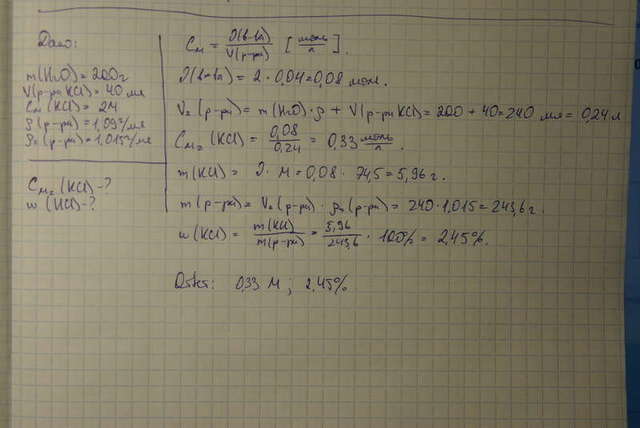 Дано:
m(H₂O) = 200г
V(р-ра KCl) = 40 мл
Cм(KCl) = 2М
ρ(р-ра) = 1,09г/мл
ρ₂(р-ра) = 1,015г/мл
Cм₂(KCl) - ?
w(KCl) - ?
Cм = ϑ(в-ва)/V(р-ра) [моль/л].
ϑ(в-ва) = 2 · 0,04 = 0,08 моль.
V₂(р-ра) = m(H₂O) · ρ + V(р-ра KCl) = 200 + 40 = 240 мл = 0,24 л
Cм₂(KCl) = 0,08/0,24 = 0,33 моль/л.
m(KCl) = ϑ · M = 0,08 · 74,5 = 5,96 г.
m(р-ра) = V₂(р-ра) · ρ₂(р-ра) = 240 · 1,015 = 243,6 г.
w(KCl) = m(KCl)/m(р-ра) = 5,96/243,6 · 100% = 2,45%.
Ответ: 0,33 М ; 2,45%